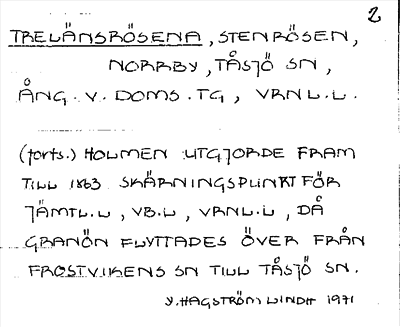 2
TRELÄNSRÖSENA, STENRÖSEN,
NORRBY, TÅSJÖ SN,
ÅNG. V. DOMS. TG, VRNL.L.
(forts.) HOLMEN UTGJORDE FRAM
TILL 1863 SKÄRNINGSPUNKT FÖR
JÄMTL.L, VB.L, VRNL.L, DÅ
GRANÖN FLYTTADES ÖVER FRÅN
FROSTVIKENS SN TILL TÅSJÖ SN.
Y. HAGSTRÖM LINDH 1971